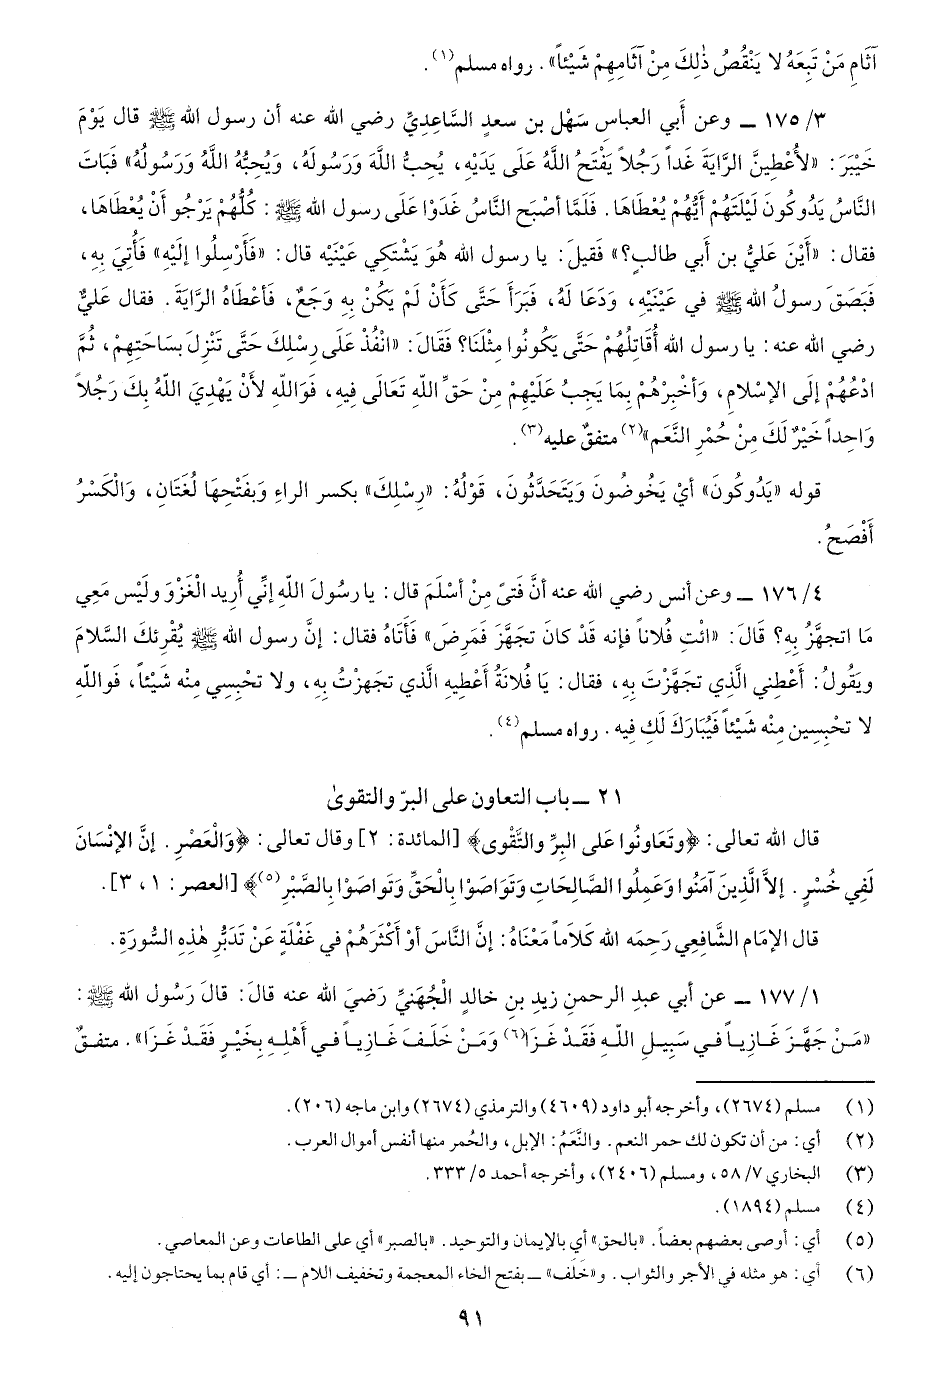 آثَامِ مَنْ تَبِعَهُ لا يَنْقُصُ ذٰلِكَ مِنْ آثَامِهِمْ شَيْئاً» . رواه مسلم(١) .
١٧٥/٣ ــ وعن أبي العباس سَهْل بن سعدٍ السَّاعِدِيِّ رضي الله عنه أن رسول الله ﷺ قال يَوْمَ
خَيْبَرَ: «لأُعْطِينَّ الرَّايَةَ غَداً رَجُلاً يَفْتَحُ اللَّهُ عَلَى يَدَيْهِ، يُحِبُّ اللَّهَ وَرَسُولَهُ، وَيُحِبُّهُ اللَّهُ وَرَسُولُهُ» فَبَاتَ
النَّاسُ يَدُوكُونَ لَيْلَتَهُمْ أَيُّهُمْ يُعْطَاهَا. فَلَمَّا أصْبَحَ النَّاسُ غَدَوْا عَلَى رسول الله ﷺ: كُلُّهُمْ يَرْجُو أَنْ يُعْطَاهَا،
فقال: «أَيْنَ عَليُّ بن أَبي طالبٍ؟» فَقيلَ: يا رسول الله هُوَ يَشْتَكِي عَيْنَيْه قال: «فَأَرْسِلُوا إِلَيْهِ» فَأُتِيَ بِهِ،
فَبَصَقَ رسولُ الله ﷺ في عَيْنَيْهِ، وَدَعَا لَهُ، فَبَرَأَ حَتَّى كَأَنْ لَمْ يَكُنْ بِهِ وَجَعٌ، فَأعْطَاهُ الرَّايَةَ. فقال عَليٌّ
رضي الله عنه: يا رسول الله أُقَاتِلُهُمْ حَتَّى يَكُونُوا مِثْلَنَا؟ فَقَالَ: «انْفُذْ عَلَى رِسْلِكَ حَتَّى تَنْزِلَ بسَاحَتِهِمْ، ثُمَّ
ادْعُهُمْ إِلَى الإِسْلامِ، وَأخْبِرْهُمْ بِمَا يَجِبُ عَلَيْهِمْ مِنْ حَقِّ اللَّهِ تَعَالَى فِيهِ، فَوَاللَّهِ لأَنْ يَهْدِيَ اللَّهُ بِكَ رَجُلاً
وَاحِداً خَيْرٌ لَكَ مِنْ حُمْرِ النَّعَم»(٢) متفقٌ عليه(٣).
قوله «يَدُوكُونَ» أيْ يَخُوضُونَ وَيَتَحَدَّثُونَ، قَوْلُهُ: «رِسْلِكَ» بكسر الراءِ وَبفَتْحِهَا لُغَتَانِ، وَالْكَسْرُ
أَفْصَحُ.
١٧٦/٤ ــ وعن أنس رضي الله عنه أنَّ فَتىً مِنْ أسْلَمَ قال: يا رسُولَ اللَّهِ إنِّي أُريد الْغَزْوَ ولَيْس مَعِي
مَا اتجهَّزُ بِهِ؟ قَالَ: «ائْتِ فُلاناً فإنه قَدْ كانَ تَجَهَّزَ فَمَرِضَ» فَأتَاهُ فقال: إنَّ رسول الله ﷺ يُقْرِئكَ السَّلامَ
ويَقُولُ: أعْطِني الَّذِي تجَهَّزْتَ بِهِ، فقال: يَا فُلانَةُ أعْطِيهِ الَّذي تجَهزْتُ بِهِ، ولا تحْبِسِي مِنْه شَيْئاً، فَواللَّهِ
لا تحْبِسِين مِنْه شَيْئاً فَيُبَارَكَ لَكِ فِيه. رواه مسلم(٤).
٢١ ــ باب التعاون على البرّ والتقوىٰ
قال الله تعالى: ﴿وتَعَاوَنُوا عَلى البِرِّ والتَّقْوى﴾ [المائدة: ٢] وقال تعالى: ﴿وَالْعَصْرِ. إنَّ الإنْسَانَ
لَفِي خُسْرٍ. إلاَّ الَّذِينَ آمَنُوا وَعَمِلُوا الصَّالِحَاتِ وَتَوَاصَوْا بِالْحَقِّ وَتَواصَوْا بِالصَّبْرِ(٥)﴾ [العصر: ١، ٣].
قال الإمَام الشَّافِعي رَحِمَه الله كَلاَماً مَعْنَاهُ: إنَّ النَّاسَ أوْ أكْثَرَهُمْ في غَفْلَةٍ عَنْ تَدَبُّرِ هٰذِهِ السُّورَةِ.
١٧٧/١ ــ عن أبي عبد الرحمن زيدِ بنِ خالدٍ الْجُهَنيِّ رَضيَ الله عنه قالَ: قالَ رَسُول الله ﷺ:
«مَنْ جَهَّزَ غَازِياً في سَبِيلِ اللَّهِ فَقَدْ غَزَا(٦) وَمَنْ خَلَفَ غَازِياً في أهْلِهِ بِخَيْرٍ فَقَدْ غَزَا». متفقٌ
(١) مسلم (٢٦٧٤)، وأخرجه أبو داود (٤٦٠٩) والترمذي (٢٦٧٤) وابن ماجه (٢٠٦).
(٢) أي: من أن تكون لك حمر النعم. والنَّعَمُ: الإبل، والحُمر منها أنفس أموال العرب.
(٣) البخاري ٥٨/٧، ومسلم (٢٤٠٦)، وأخرجه أحمد ٣٣٣/٥.
(٤) مسلم (١٨٩٤).
(٥) أي: أوصى بعضهم بعضاً. «بالحق» أي بالإيمان والتوحيد. «بالصبر» أي على الطاعات وعن المعاصي.
(٦) أي: هو مثله في الأجر والثواب. و«خَلَف» ــ بفتح الخاء المعجمة وتخفيف اللام ــ: أي قام بما يحتاجون إليه.
٩١